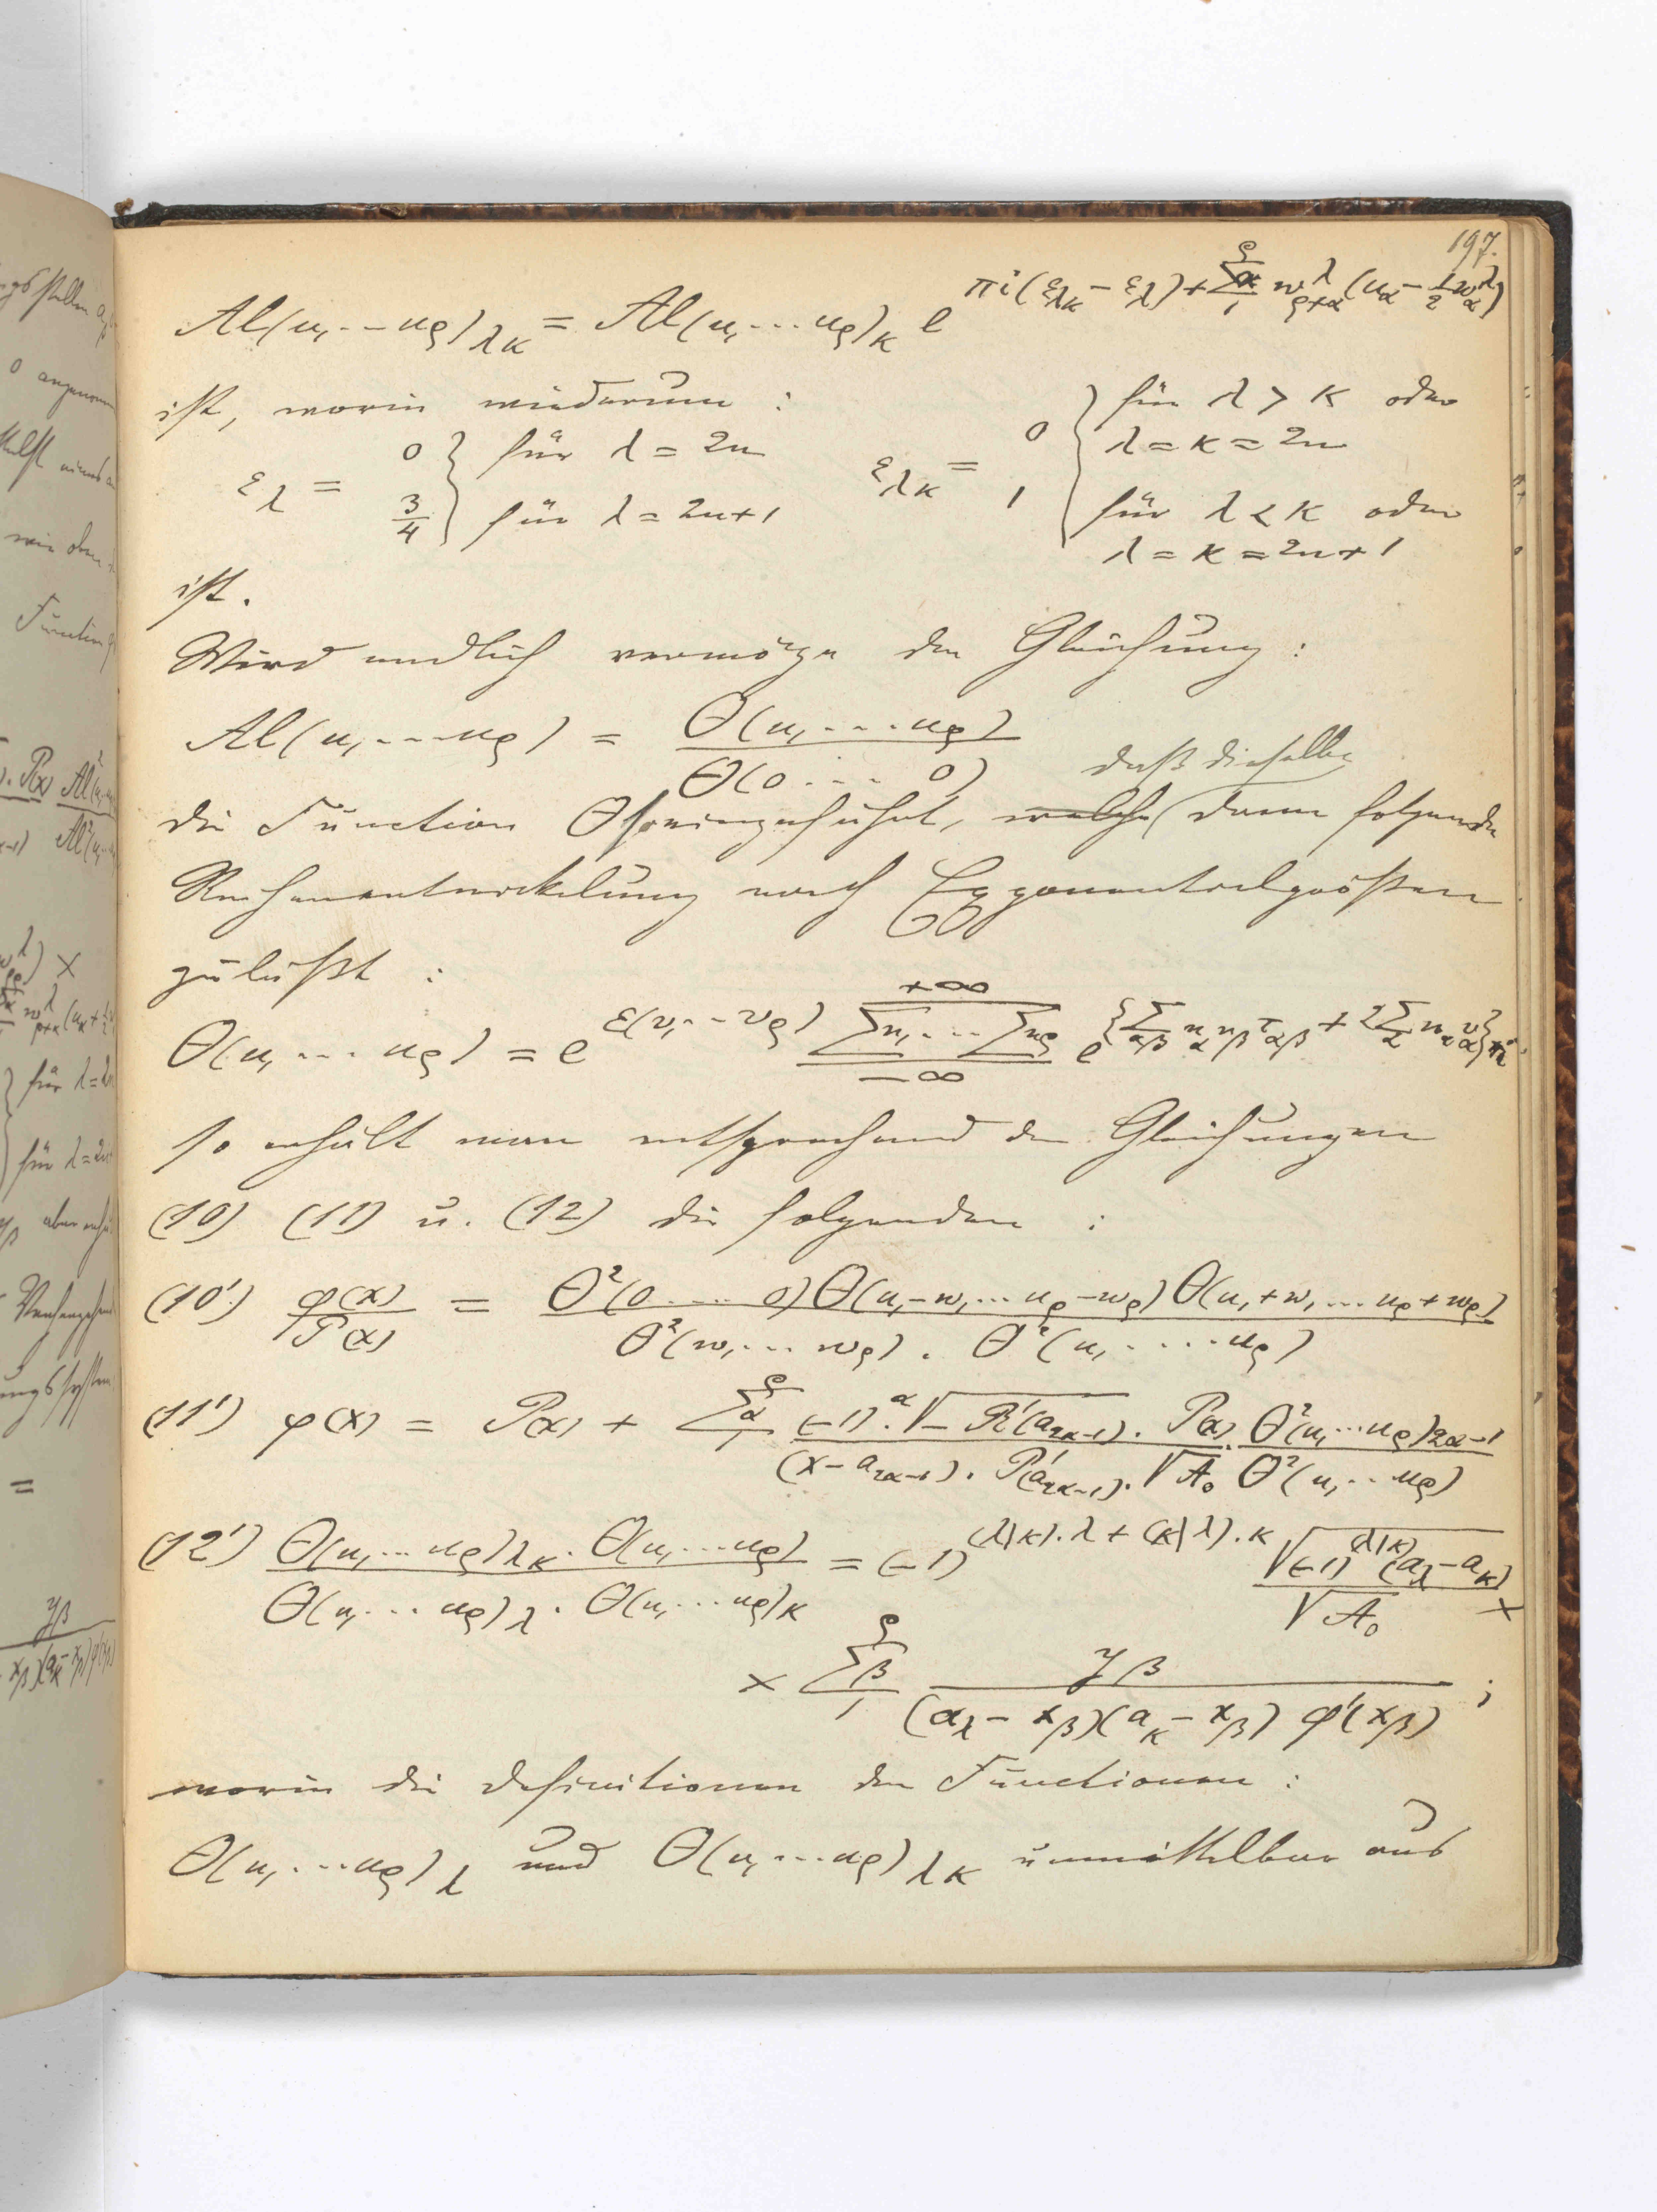 197.
Al(u₁...u_ρ)_λκ = Al(u₁...u_ρ)_κ e^{πi(ε_λκ − ε_λ) + Σ_α₁^ρ w^λ_{ρ+α}(u_α − ½w^λ_α)}
ist, worin wiederum :
ε_λ = { 0 für λ = 2n ; ¾ für λ = 2n+1 }   ε_λκ = { 0 für λ > κ oder λ = κ = 2n ; 1 für λ < κ oder λ = κ = 2n+1 }
ist.
Wird endlich vermöge der Gleichung :
Al(u₁...u_ρ) = Θ(u₁....u_ρ) / Θ(0....0)
daß dieselbe
die Function Θ so eingeführt, welche dann folgende
Reihenentwickelung nach Exponentialgrößen
zuläßt :
Θ(u₁...u_ρ) = e^{ε(v₁..v_ρ)} Σn₁...Σn_ρ_{−∞}^{+∞} e^{{Σ_αβ n_α n_β τ_αβ + 2Σ_α n_α v_α}πi}
so erhält man entsprechend den Gleichungen
(10) (11) u. (12) die folgenden :
(10'.) φ(x)/P(x) = Θ²(0....0)Θ(u₁−w₁...u_ρ−w_ρ)Θ(u₁+w₁...u_ρ+w_ρ) / Θ²(w₁...w_ρ) . Θ²(u₁....u_ρ)
(11') φ(x) = P(x) + Σ_α₁^ρ (−1)^α.√−R'(a_{2α−1}) . P(x) . Θ²(u₁...u_ρ)_{2α−1} / (x−a_{2α−1}) . P'(a_{2α−1}) . √A₀ Θ²(u₁...u_ρ)
(12') Θ(u₁...u_ρ)_λκ . Θ(u₁...u_ρ) / Θ(u₁...u_ρ)_λ . Θ(u₁...u_ρ)_κ = (−1)^{(λ|κ).λ + (κ|λ).κ} √(−1)^{(λ|κ)}(a_λ−a_κ) / √A₀ ×
× Σ_β₁^ρ y_β / (a_λ − x_β)(a_κ − x_β) φ'(x_β) ;
worin die Definitionen der Functionen :
Θ(u₁...u_ρ)_λ und Θ(u₁...u_ρ)_λκ unmittelbar aus